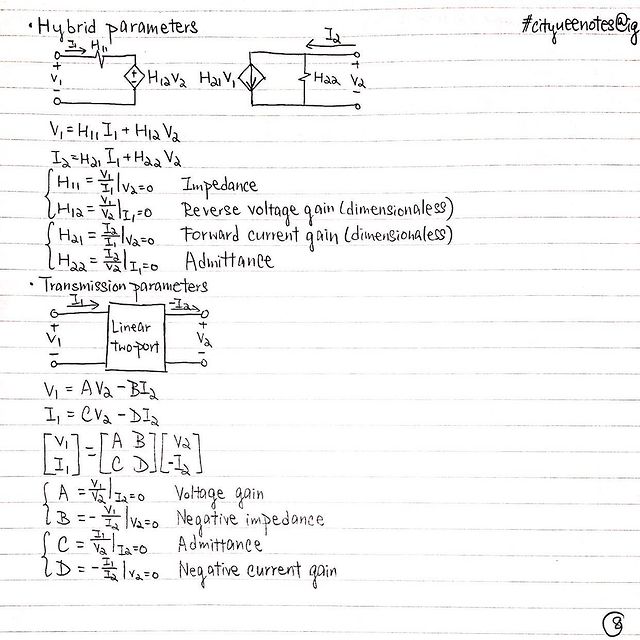 • Hybrid parameters
#cityueenotes@ig
I₁ H₁₁ I₂
+ V₁ - + - H₁₂V₂ H₂₁V₁ H₂₂ + V₂ -
V₁ = H₁₁ I₁ + H₁₂ V₂
I₂ = H₂₁ I₁ + H₂₂ V₂
H₁₁ = V₁/I₁ |V₂=0 Impedance
H₁₂ = V₁/V₂ |I₁=0 Reverse voltage gain (dimensionaless)
H₂₁ = I₂/I₁ |V₂=0 Forward current gain (dimensionaless)
H₂₂ = I₂/V₂ |I₁=0 Admittance
• Transmission parameters
I₁ -I₂
+ V₁ - Linear + V₂ -
two-port
V₁ = AV₂ - BI₂
I₁ = CV₂ - DI₂
[V₁ I₁] = [A B C D] [V₂ -I₂]
A = V₁/V₂ |I₂=0 Voltage gain
B = - V₁/I₂ |V₂=0 Negative impedance
C = I₁/V₂ |I₂=0 Admittance
D = - I₁/I₂ |V₂=0 Negative current gain
8